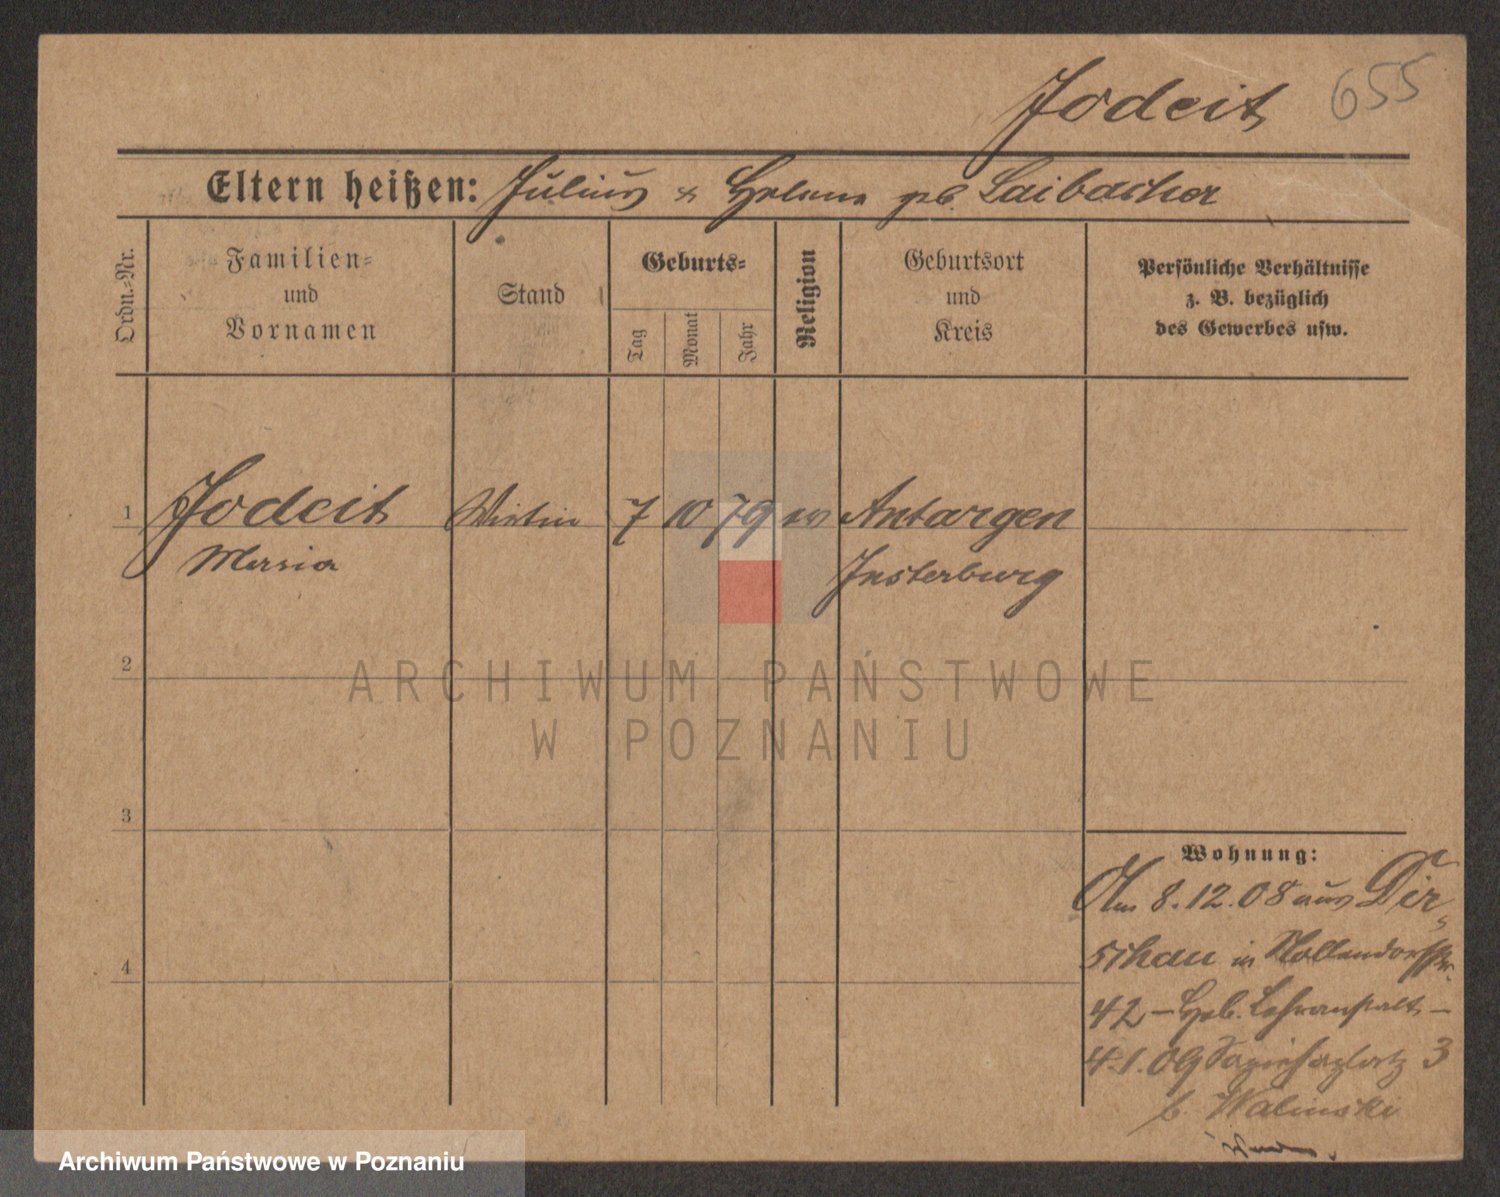 Jodeit 655
Eltern heißen: Julius & Helene geb. Laibacher
Ordn.-Nr.
Familien-
und
Vornamen
Stand
Geburts-
Tag
Monat
Jahr
Religion
Geburtsort
und
Kreis
Persönliche Verhältnisse
z. B. bezüglich
des Gewerbes usw.
1 Jodeit Wirtin 7 10 79 ev Antargen
Maria Insterburg
2
ARCHIWUM PAŃSTWOWE
W POZNANIU
3
4
Wohnung:
Am 8.12.08 aus Dir-
schau in Nollendorfstr.
42 – Heb. Lehranstalt –
4.1.09 Sapiehaplatz 3
b. Walinski
Archiwum Państwowe w Poznaniu